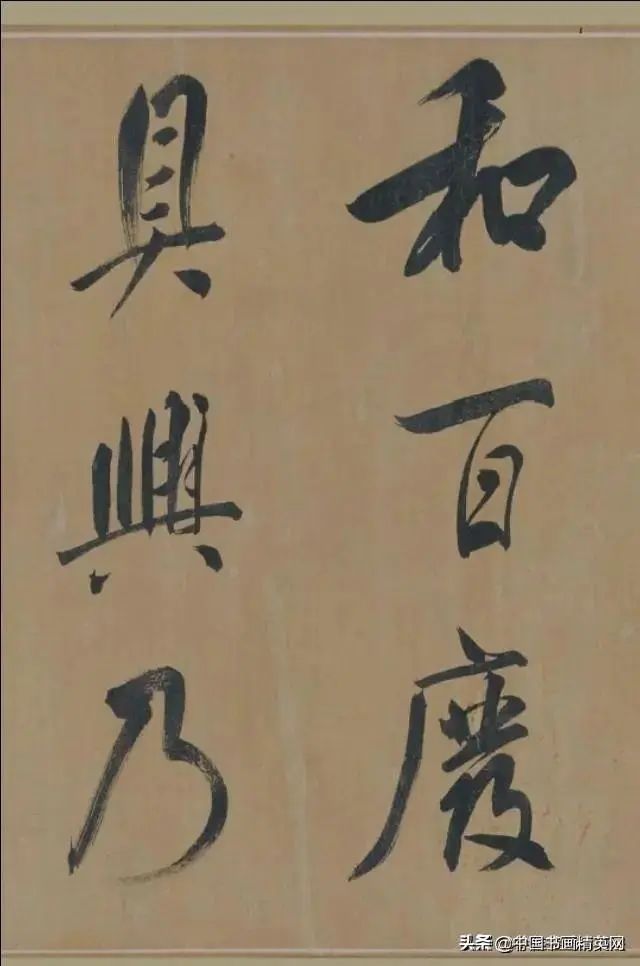 和百廢
具興乃
头条@书国书画精英网